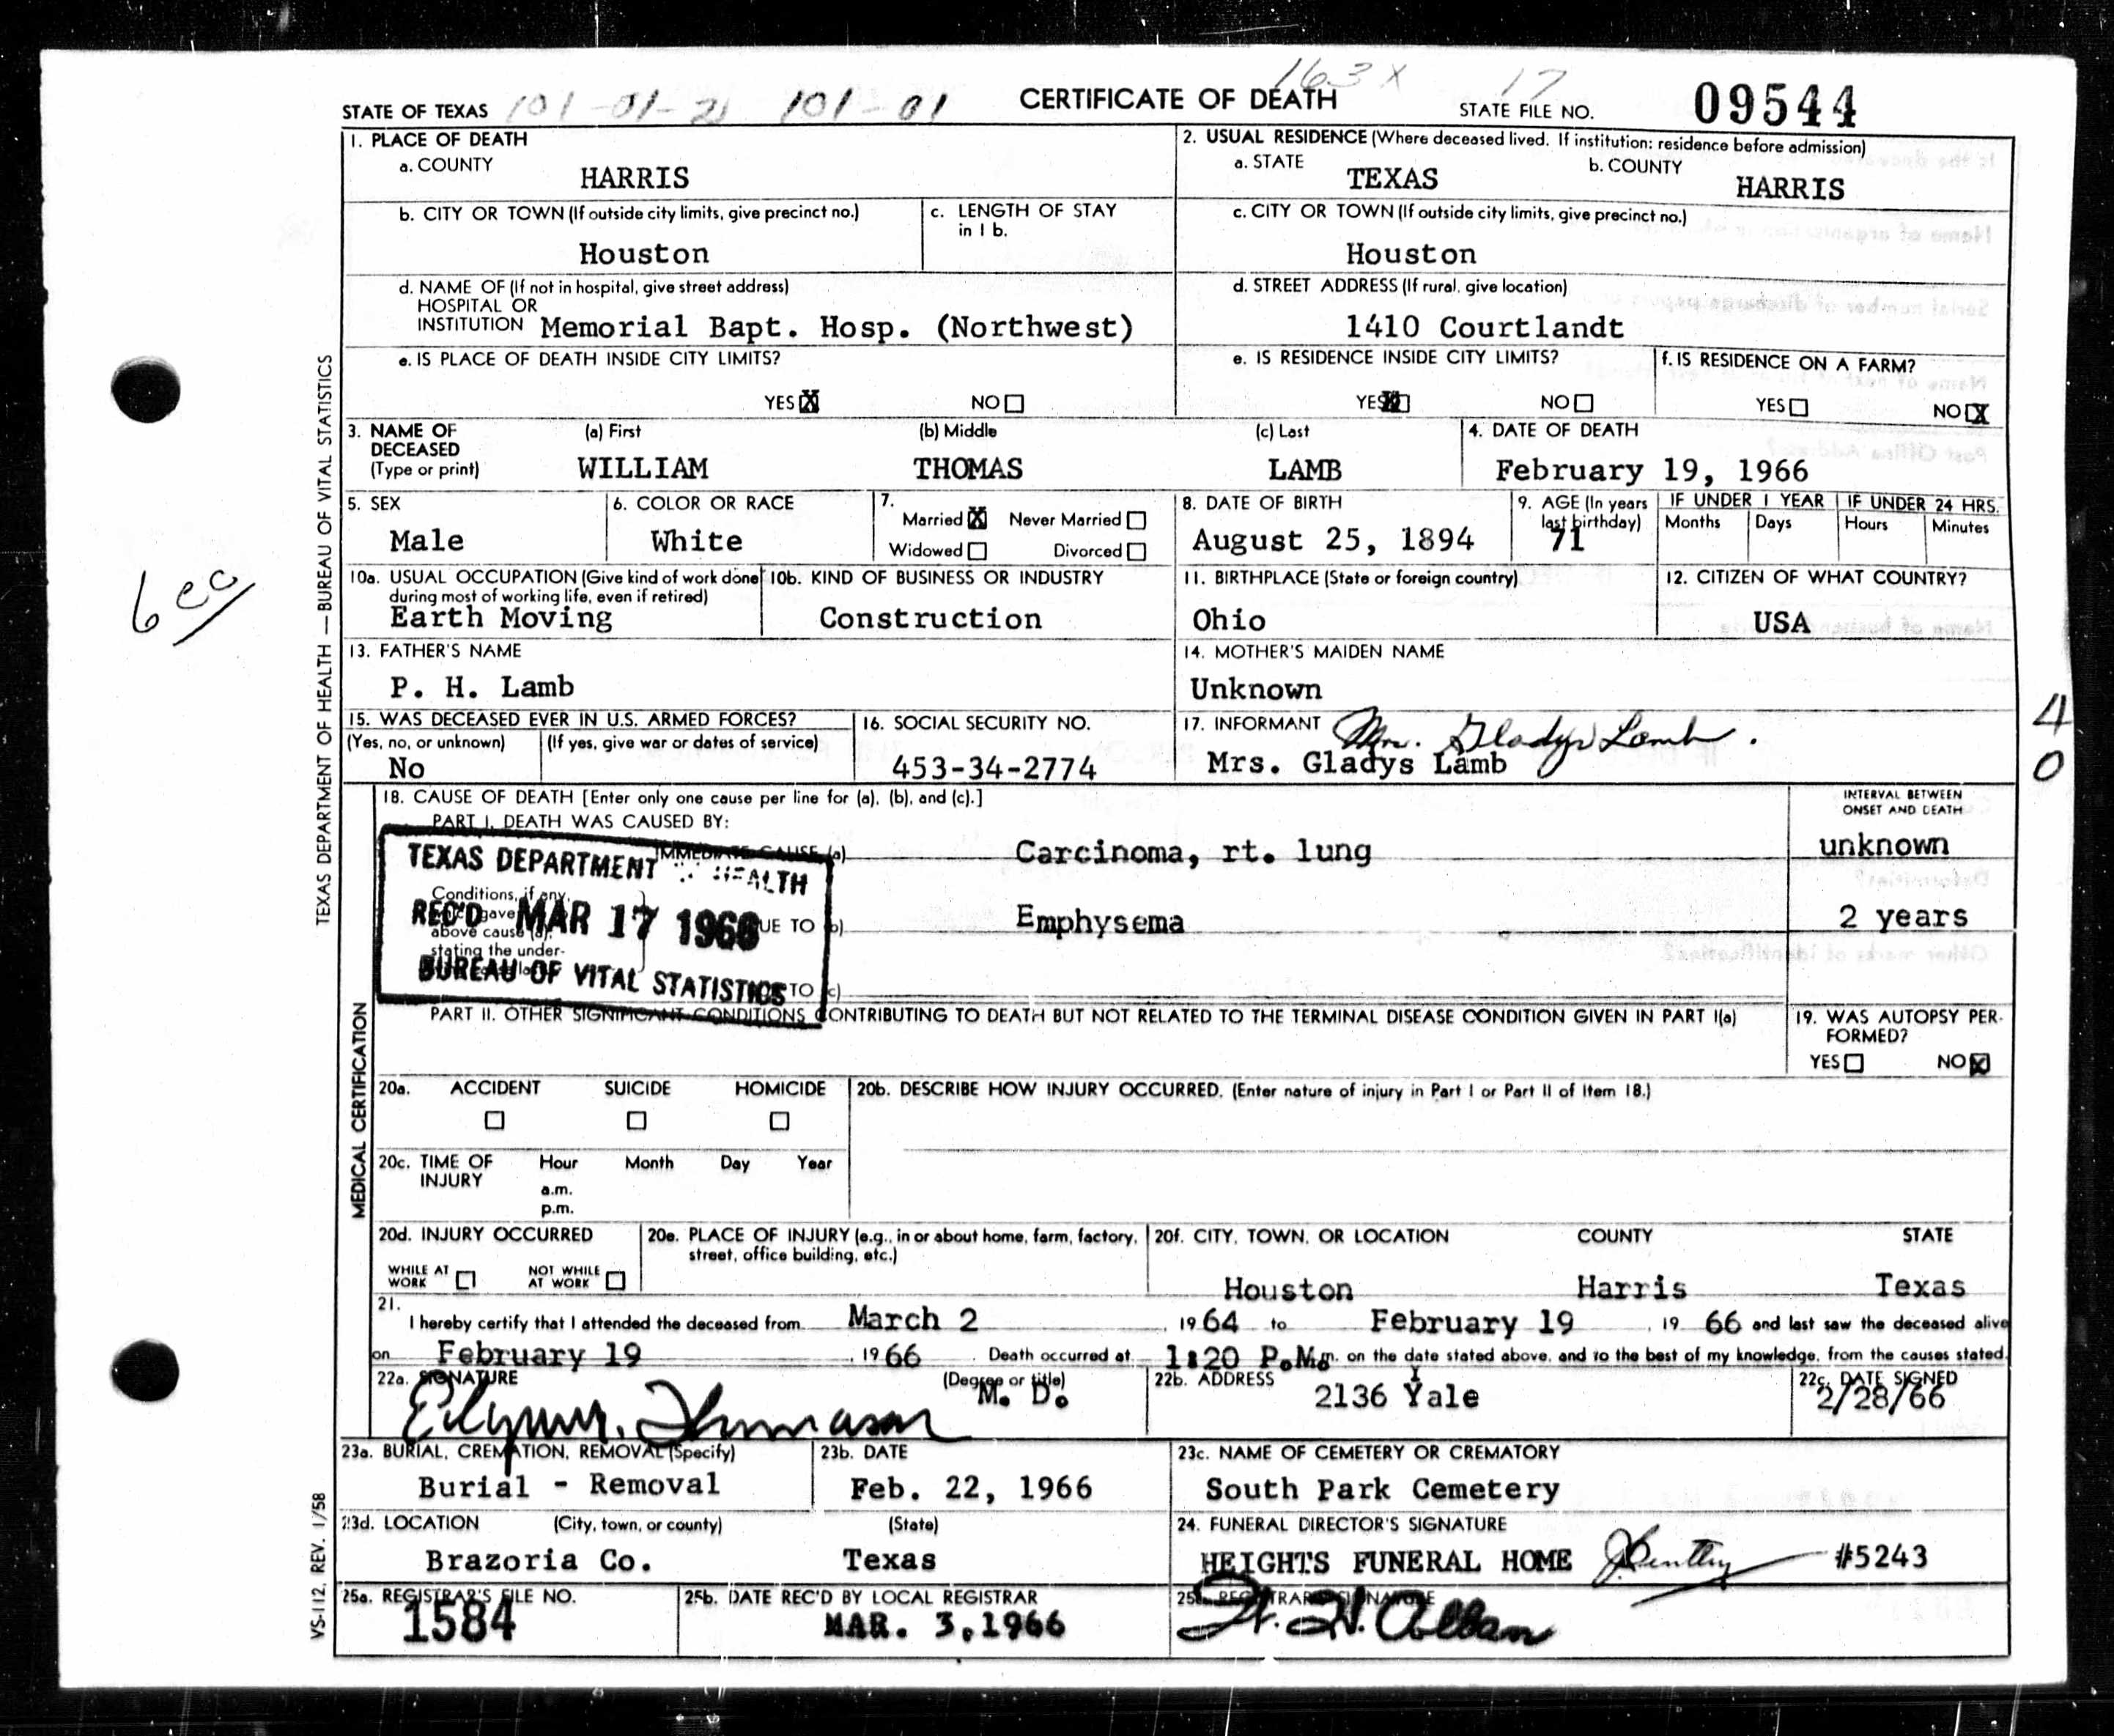 163 x 17
STATE OF TEXAS 101-01-21 101-01 CERTIFICATE OF DEATH STATE FILE NO. 09544
1. PLACE OF DEATH
a. COUNTY HARRIS
2. USUAL RESIDENCE (Where deceased lived. If institution: residence before admission)
a. STATE TEXAS b. COUNTY HARRIS
b. CITY OR TOWN (If outside city limits, give precinct no.) Houston
c. LENGTH OF STAY in 1 b.
c. CITY OR TOWN (If outside city limits, give precinct no.) Houston
d. NAME OF (If not in hospital, give street address)
HOSPITAL OR
INSTITUTION Memorial Bapt. Hosp. (Northwest)
d. STREET ADDRESS (If rural, give location)
1410 Courtlandt
e. IS PLACE OF DEATH INSIDE CITY LIMITS?
YES X NO
e. IS RESIDENCE INSIDE CITY LIMITS?
YES X NO
f. IS RESIDENCE ON A FARM?
YES NO X
3. NAME OF DECEASED (Type or print)
(a) First (b) Middle (c) Last
WILLIAM THOMAS LAMB
4. DATE OF DEATH
February 19, 1966
5. SEX
Male
6. COLOR OR RACE
White
7.
Married X Never Married
Widowed Divorced
8. DATE OF BIRTH
August 25, 1894
9. AGE (In years last birthday)
71
IF UNDER 1 YEAR IF UNDER 24 HRS.
Months Days Hours Minutes
10a. USUAL OCCUPATION (Give kind of work done
during most of working life, even if retired)
Earth Moving
10b. KIND OF BUSINESS OR INDUSTRY
Construction
11. BIRTHPLACE (State or foreign country)
Ohio
12. CITIZEN OF WHAT COUNTRY?
USA
13. FATHER'S NAME
P. H. Lamb
14. MOTHER'S MAIDEN NAME
Unknown
15. WAS DECEASED EVER IN U.S. ARMED FORCES?
(Yes, no, or unknown) (If yes, give war or dates of service)
No
16. SOCIAL SECURITY NO.
453-34-2774
17. INFORMANT Mrs. Gladys Lamb.
Mrs. Gladys Lamb
4
0
18. CAUSE OF DEATH [Enter only one cause per line for (a), (b), and (c).]
PART I. DEATH WAS CAUSED BY:
INTERVAL BETWEEN
ONSET AND DEATH
IMMEDIATE CAUSE (a) Carcinoma, rt. lung unknown
Conditions, if any,
gave
above cause (a),
stating the under-
DUE TO (b) Emphysema 2 years
TO (c)
TEXAS DEPARTMENT HEALTH
REC'D MAR 17 1966
BUREAU OF VITAL STATISTICS
PART II. OTHER SIGNIFICANT CONDITIONS CONTRIBUTING TO DEATH BUT NOT RELATED TO THE TERMINAL DISEASE CONDITION GIVEN IN PART I(a)
19. WAS AUTOPSY PER-
FORMED?
YES NO X
20a. ACCIDENT SUICIDE HOMICIDE
20b. DESCRIBE HOW INJURY OCCURRED. (Enter nature of injury in Part I or Part II of Item 18.)
20c. TIME OF INJURY
Hour Month Day Year
a.m.
p.m.
20d. INJURY OCCURRED
WHILE AT WORK NOT WHILE AT WORK
20e. PLACE OF INJURY (e.g., in or about home, farm, factory,
street, office building, etc.)
20f. CITY, TOWN, OR LOCATION COUNTY STATE
Houston Harris Texas
21.
I hereby certify that I attended the deceased from March 2, 1964 to February 19, 1966 and last saw the deceased alive
on February 19, 1966. Death occurred at 1:20 P.M. m. on the date stated above, and to the best of my knowledge, from the causes stated.
22a. SIGNATURE (Degree or title)
M. D.
22b. ADDRESS
2136 Yale
22c. DATE SIGNED
2/28/66
23a. BURIAL, CREMATION, REMOVAL (Specify)
Burial - Removal
23b. DATE
Feb. 22, 1966
23c. NAME OF CEMETERY OR CREMATORY
South Park Cemetery
23d. LOCATION (City, town, or county) (State)
Brazoria Co. Texas
24. FUNERAL DIRECTOR'S SIGNATURE
HEIGHTS FUNERAL HOME #5243
25a. REGISTRAR'S FILE NO.
1584
25b. DATE REC'D BY LOCAL REGISTRAR
MAR. 3, 1966
25c. REGISTRAR'S SIGNATURE
TEXAS DEPARTMENT OF HEALTH — BUREAU OF VITAL STATISTICS
MEDICAL CERTIFICATION
VS-112, REV. 1/58